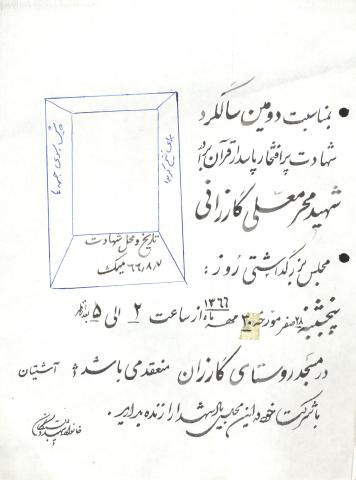 بمناسبت دومین سالگرد
شهادت پرافتخار پاسدار قرآن برادر
شهید محمد علی گازرانی
تاریخ و محل شهادت
۶۶/۸/۷
مجلس بزرگداشتی روز:
پنجشنبه ۲۸ صفر مورخه ۳۰ مهر ماه ۱۳۶۶ از ساعت ۲ الی ۵ بعدازظهر
در مسجد روستای گازران منعقد می باشد آشتیان
با شرکت خود در این مجلس یاد شهدا را زنده بداریم.
خانواده